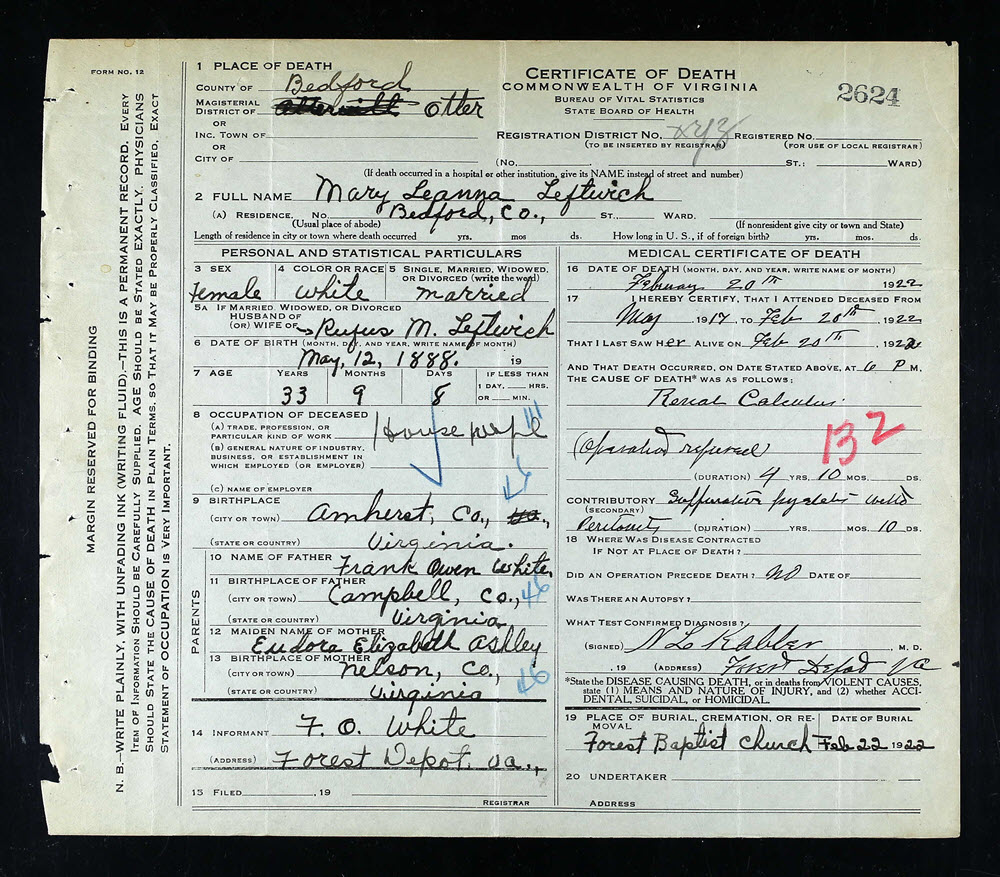 FORM NO. 12
MARGIN RESERVED FOR BINDING
N. B.—WRITE PLAINLY, WITH UNFADING INK (WRITING FLUID).—THIS IS A PERMANENT RECORD. EVERY
ITEM OF INFORMATION SHOULD BE CAREFULLY SUPPLIED. AGE SHOULD BE STATED EXACTLY. PHYSICIANS
SHOULD STATE THE CAUSE OF DEATH IN PLAIN TERMS, SO THAT IT MAY BE PROPERLY CLASSIFIED. EXACT
STATEMENT OF OCCUPATION IS VERY IMPORTANT.
1 PLACE OF DEATH
COUNTY OF Bedford
MAGISTERIAL
DISTRICT OF Otter
OR
INC. TOWN OF
OR
CITY OF
CERTIFICATE OF DEATH
COMMONWEALTH OF VIRGINIA
BUREAU OF VITAL STATISTICS
STATE BOARD OF HEALTH
2624
REGISTRATION DISTRICT NO. xyz REGISTERED NO.
(TO BE INSERTED BY REGISTRAR) (FOR USE OF LOCAL REGISTRAR)
(No. ST.: WARD)
(If death occurred in a hospital or other institution, give its NAME instead of street and number)
2 FULL NAME Mary Leanna Leftwich
(A) RESIDENCE. No. Bedford, Co., ST., WARD.
(Usual place of abode) (If nonresident give city or town and State)
Length of residence in city or town where death occurred yrs. mos ds. How long in U. S., if of foreign birth? yrs. mos. ds.
PERSONAL AND STATISTICAL PARTICULARS
3 SEX 4 COLOR OR RACE 5 SINGLE, MARRIED, WIDOWED,
OR DIVORCED (write the word)
Female White Married
5A IF MARRIED, WIDOWED, OR DIVORCED
HUSBAND OF
(OR) WIFE OF Rufus M. Leftwich
6 DATE OF BIRTH (MONTH, DAY, AND YEAR, WRITE NAME OF MONTH)
May, 12, 1888. 19
7 AGE YEARS MONTHS DAYS IF LESS THAN
1 DAY, HRS.
OR MIN.
33 9 8
8 OCCUPATION OF DECEASED
(A) TRADE, PROFESSION, OR
PARTICULAR KIND OF WORK
(B) GENERAL NATURE OF INDUSTRY,
BUSINESS, OR ESTABLISHMENT IN
WHICH EMPLOYED (OR EMPLOYER)
(C) NAME OF EMPLOYER
9 BIRTHPLACE
(CITY OR TOWN) Amherst, Co.,
(STATE OR COUNTRY) Virginia.
46
PARENTS
10 NAME OF FATHER
Frank Owen White,
11 BIRTHPLACE OF FATHER
(CITY OR TOWN) Campbell, Co., 46
(STATE OR COUNTRY) Virginia
12 MAIDEN NAME OF MOTHER
Eudora Elizabeth Ashley
13 BIRTHPLACE OF MOTHER
(CITY OR TOWN) Nelson, Co., 46
(STATE OR COUNTRY) Virginia
14 INFORMANT F. O. White
(ADDRESS) Forest Depot, Va.,
15 FILED , 19
REGISTRAR
MEDICAL CERTIFICATE OF DEATH
16 DATE OF DEATH (MONTH, DAY, AND YEAR, WRITE NAME OF MONTH)
February 20th 1922
17 I HEREBY CERTIFY, THAT I ATTENDED DECEASED FROM
May , 1917, TO Feb 20th , 1922
THAT I LAST SAW HER ALIVE ON Feb 20th , 1922
AND THAT DEATH OCCURRED, ON DATE STATED ABOVE, AT 6 P M.
THE CAUSE OF DEATH* WAS AS FOLLOWS:
Renal Calculus.
132
(Operation refused)
(DURATION) 4 YRS. 10 MOS. DS.
CONTRIBUTORY Suppurative
(SECONDARY)
Peritonitis (DURATION) YRS. MOS. 10 DS.
18 WHERE WAS DISEASE CONTRACTED
IF NOT AT PLACE OF DEATH?
DID AN OPERATION PRECEDE DEATH? No DATE OF
WAS THERE AN AUTOPSY?
WHAT TEST CONFIRMED DIAGNOSIS?
(SIGNED) N L Kabler M. D.
, 19 (ADDRESS) Forest Depot Va
*State the DISEASE CAUSING DEATH, or in deaths from VIOLENT CAUSES,
state (1) MEANS AND NATURE OF INJURY, and (2) whether ACCI-
DENTAL, SUICIDAL, or HOMICIDAL.
19 PLACE OF BURIAL, CREMATION, OR RE-
MOVAL DATE OF BURIAL
Forest Baptist Church Feb 22 1922
20 UNDERTAKER
ADDRESS